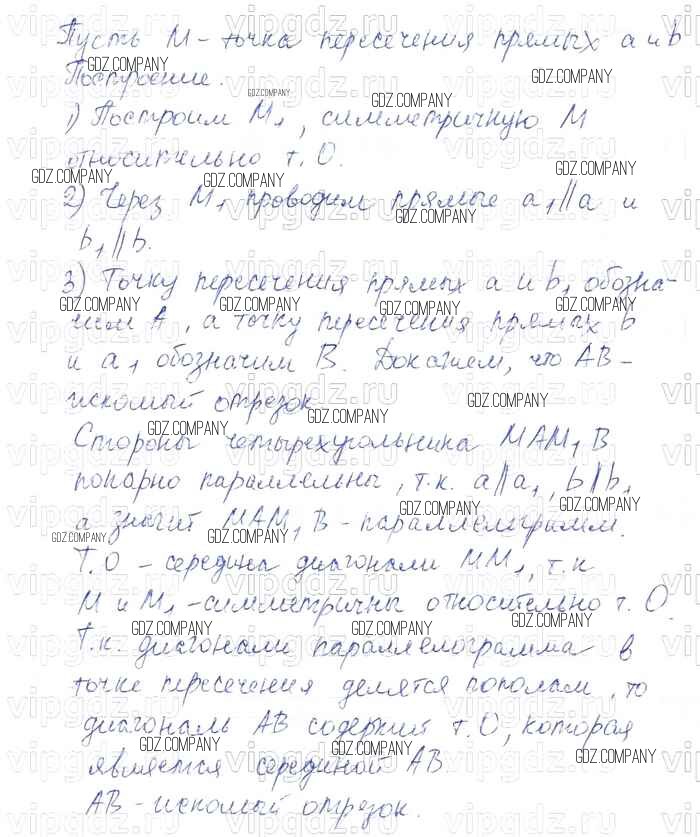 Пусть М - точка пересечения прямых a и b
Построение.
1) Построим М₁, симметричную М
относительно т. О.
2) Через М₁ проводим прямые a₁∥a и
b₁∥b.
3) Точку пересечения прямых a и b₁ обозна-
чим А, а точку пересечения прямых b
и a₁ обозначим В. Докажем, что АВ -
искомый отрезок
Стороны четырехугольника МАМ₁В
попарно параллельны, т.к. a∥a₁, b∥b₁
а значит МАМ₁В - параллелограмм.
Т.О - середина диагонали ММ₁, т.к
М и М₁ - симметричны относительно т. О.
Т.к. диагонали параллелограмма в
точке пересечения делятся пополам, то
диагональ АВ содержит т.О, которая
является серединой АВ
АВ - искомый отрезок.
GDZ.COMPANY
vipgdz.ru